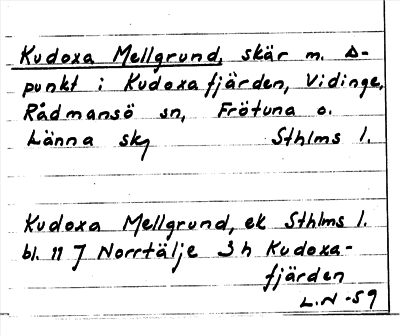 Kudoxa Mellgrund, skär m. Δ-
punkt i Kudoxafjärden, Vidinge,
Rådmansö sn, Frötuna o.
Länna sk Sthlms l.
Kudoxa Mellgrund, ek Sthlms l.
bl. 11 J Norrtälje 3 h Kudoxa-
fjärden
L.N -59